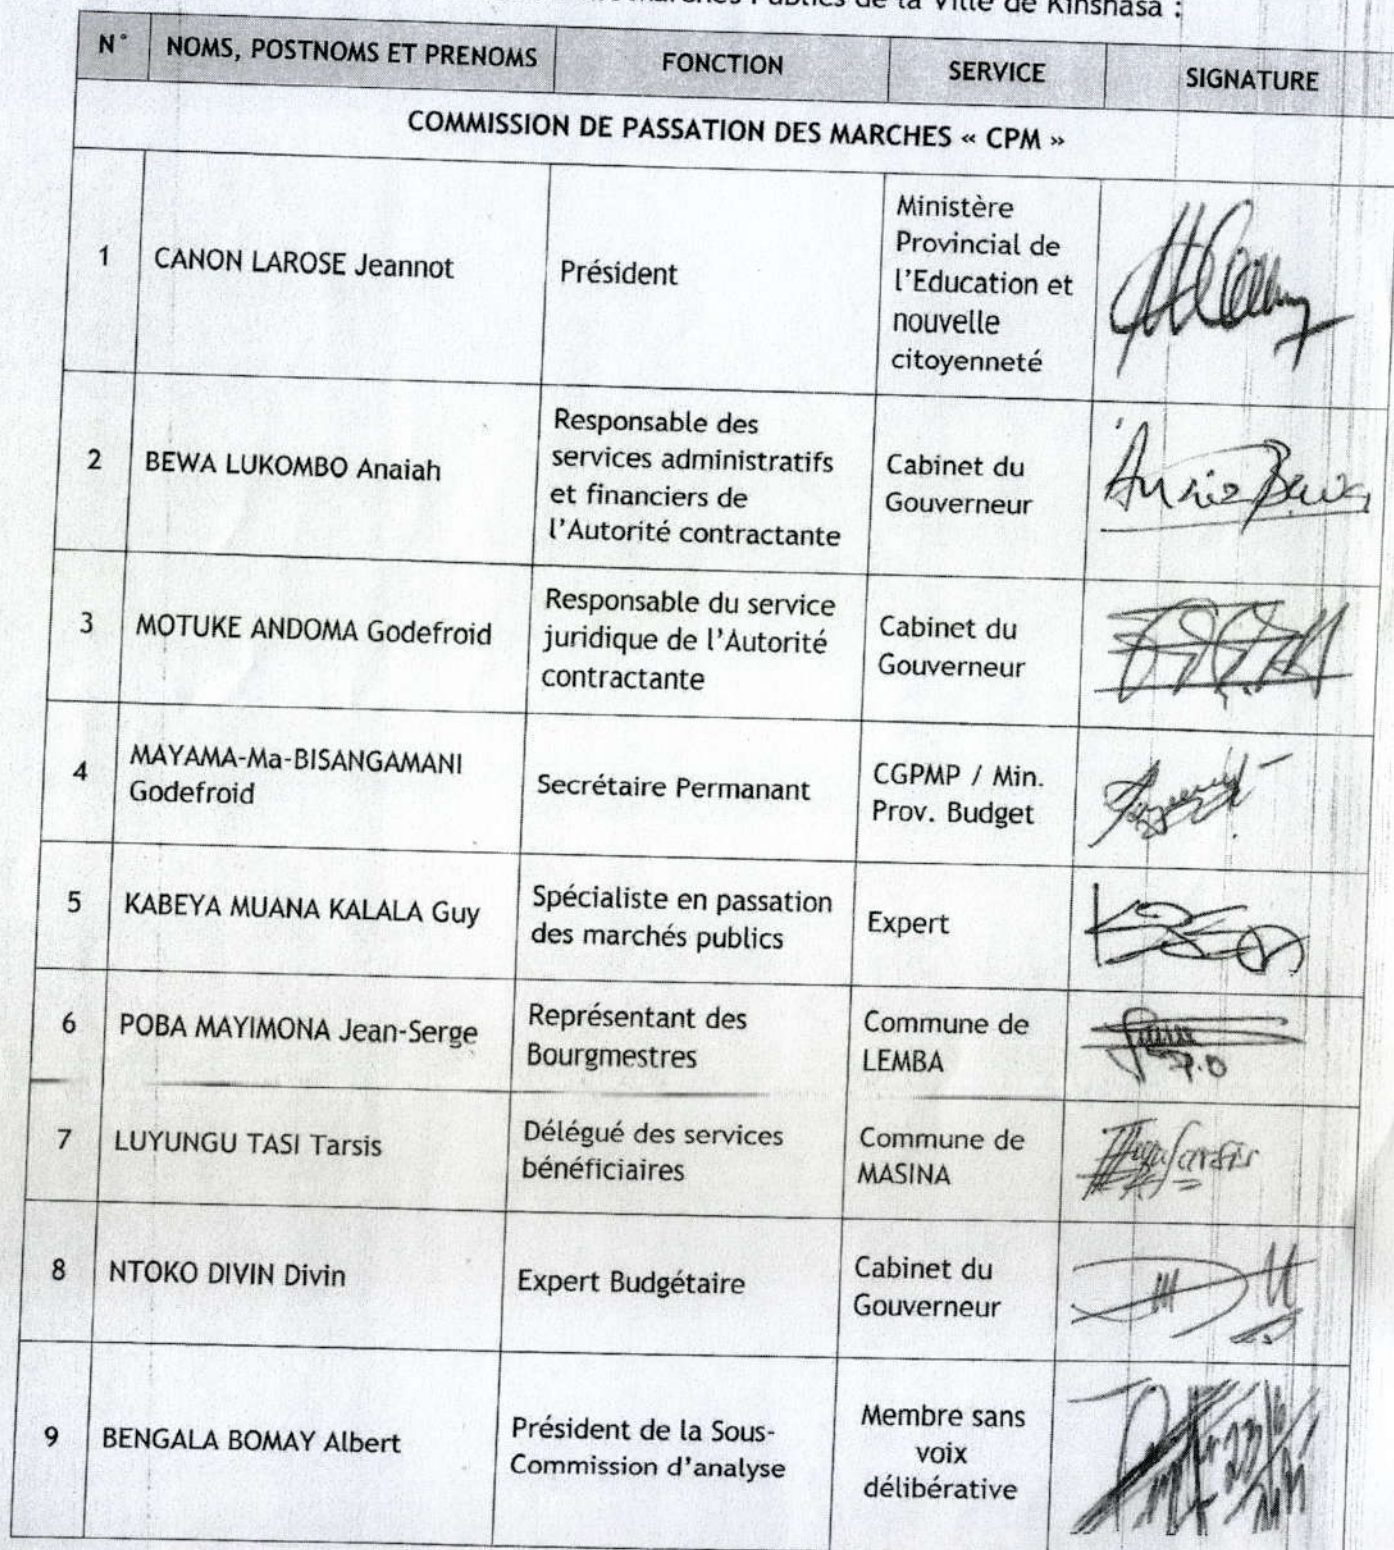 Marchés Publics de la Ville de Kinshasa :
N° NOMS, POSTNOMS ET PRENOMS FONCTION SERVICE SIGNATURE
COMMISSION DE PASSATION DES MARCHES « CPM »
1 CANON LAROSE Jeannot Président
Ministère
Provincial de
l'Education et
nouvelle
citoyenneté
2 BEWA LUKOMBO Anaiah
Responsable des
services administratifs
et financiers de
l'Autorité contractante
Cabinet du
Gouverneur
3 MOTUKE ANDOMA Godefroid
Responsable du service
juridique de l'Autorité
contractante
Cabinet du
Gouverneur
4
MAYAMA-Ma-BISANGAMANI
Godefroid
Secrétaire Permanant
CGPMP / Min.
Prov. Budget
5 KABEYA MUANA KALALA Guy
Spécialiste en passation
des marchés publics
Expert
6 POBA MAYIMONA Jean-Serge
Représentant des
Bourgmestres
Commune de
LEMBA
P.O
7 LUYUNGU TASI Tarsis
Délégué des services
bénéficiaires
Commune de
MASINA
8 NTOKO DIVIN Divin
Expert Budgétaire
Cabinet du
Gouverneur
9 BENGALA BOMAY Albert
Président de la Sous-
Commission d'analyse
Membre sans
voix
délibérative